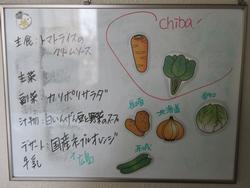 主食:トマトライスの
クリームソース
主菜
副菜 カリポリサラダ
汁物:白いんげん豆と野菜のスープ
デザート:国産ネーブルオレンジ
牛乳
広島
chiba
長崎
北海道
愛知
茨城